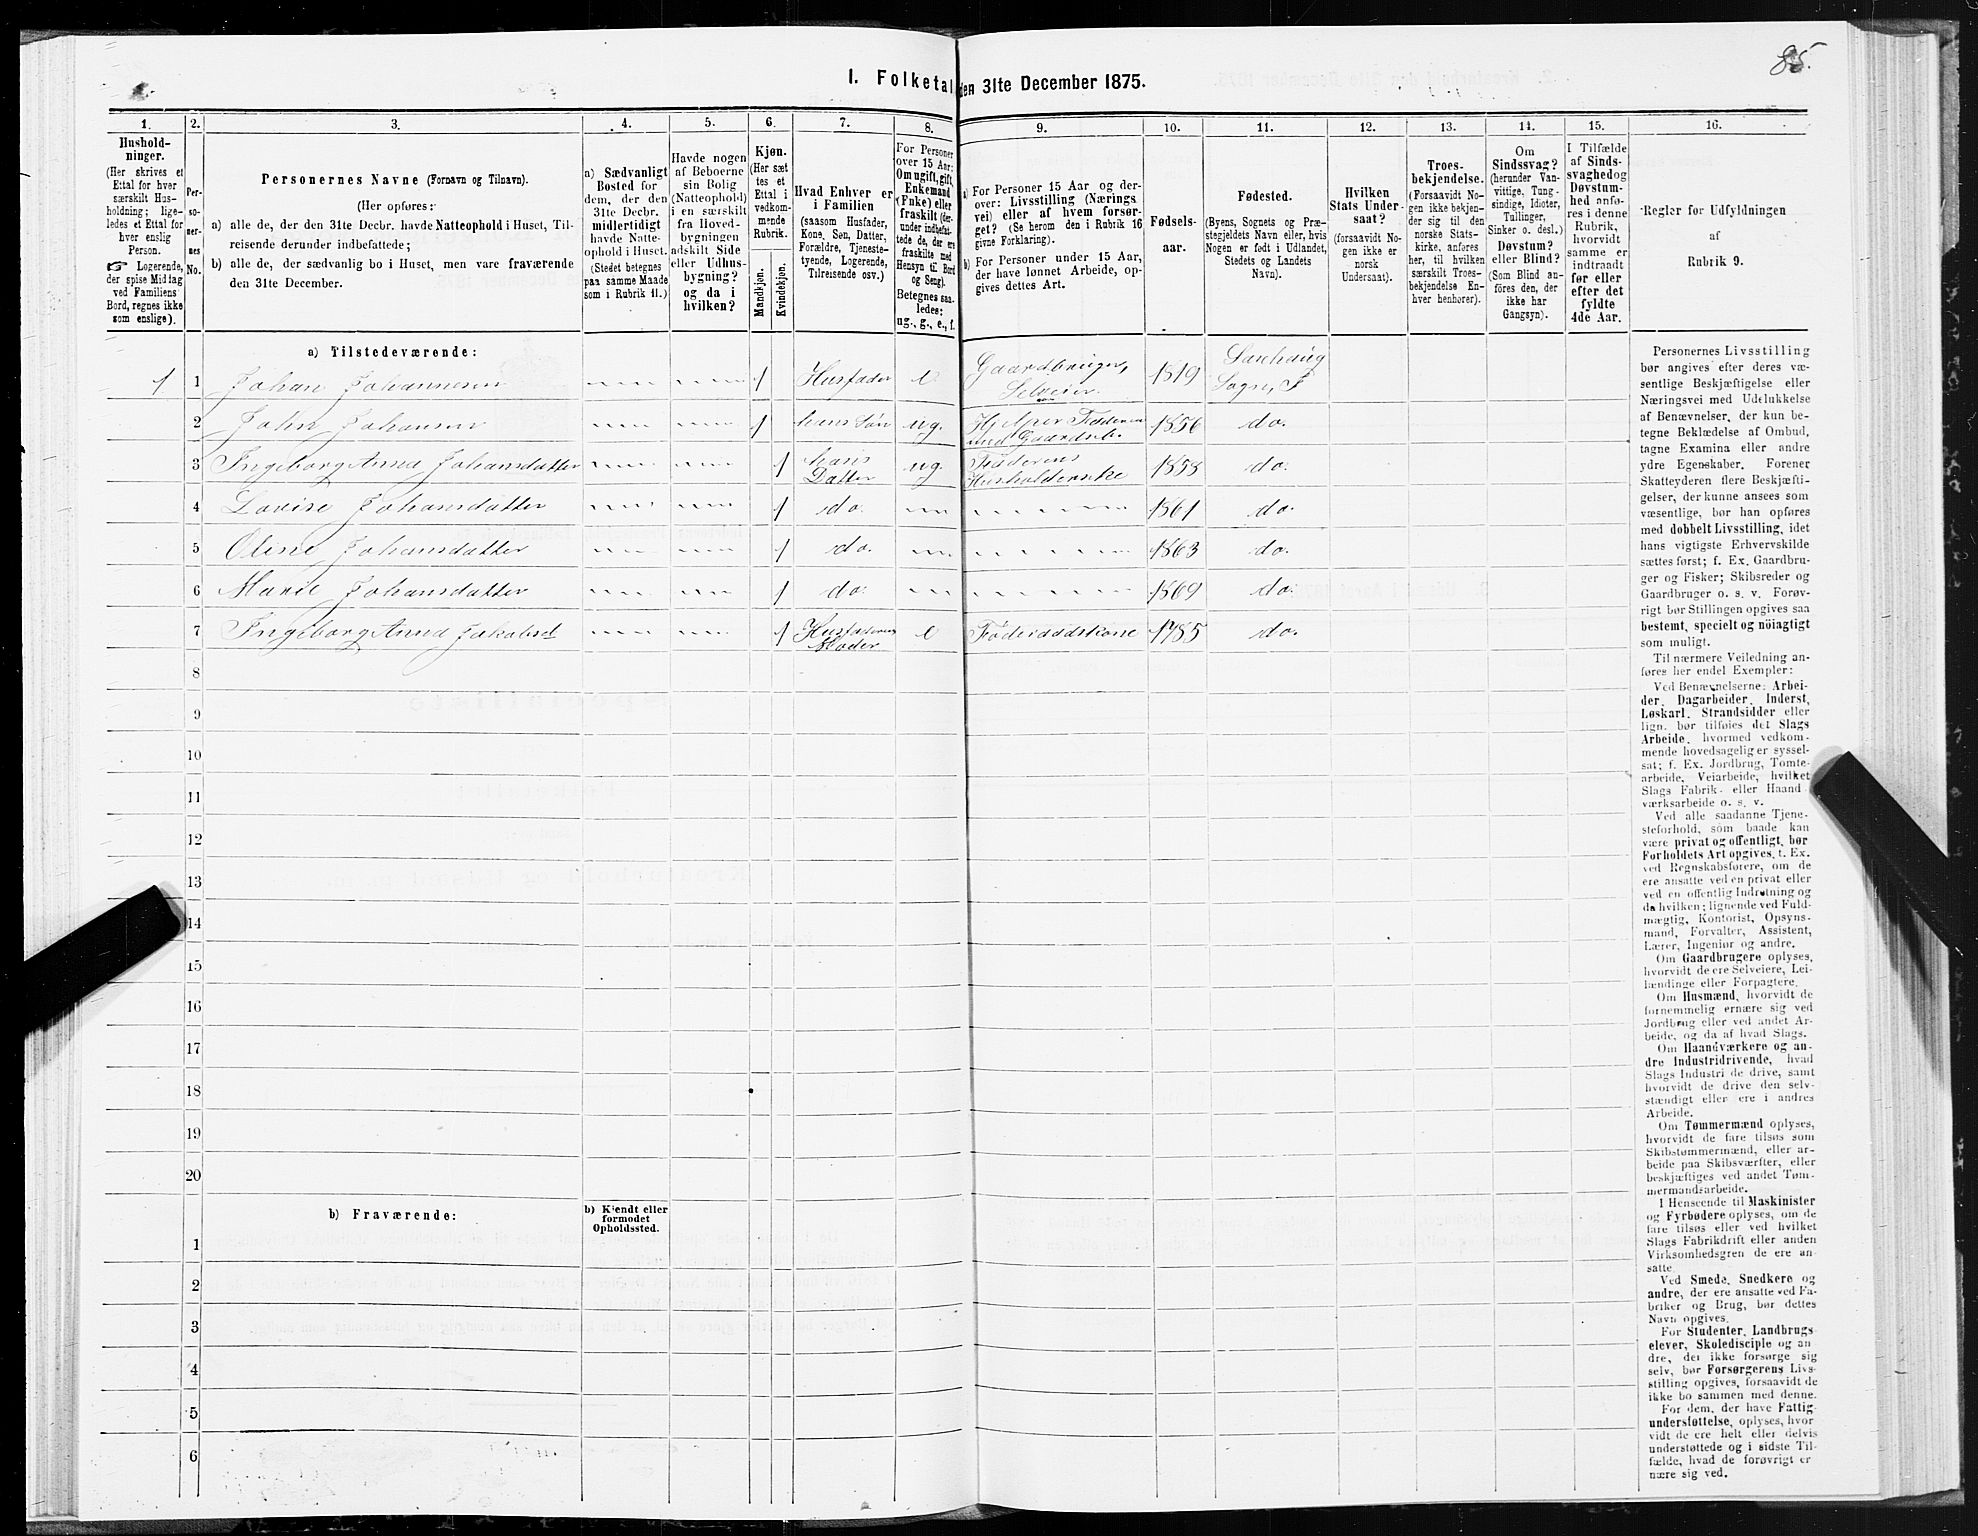 85.
I. Folketal den 31te December 1875.
1. 2. 3. 4. 5. 6. 7. 8. 9. 10. 11. 12. 13. 14. 15. 16.
Hushold-
ninger.
(Her skrives et
Ettal for hver
særskilt Hus-
holdning; lige-
ledes et Ettal for
hver enslig
Person.
☞ Logerende,
der spise Middag
ved Familiens
Bord, regnes ikke
som enslige).
Per-
so-
ner-
nes
No.
Personernes Navne (Fornavn og Tilnavn).
(Her opføres:
a) alle de, der den 31te Decbr. havde Natteophold i Huset, Til-
reisende derunder indbefattede;
b) alle de, der sædvanlig bo i Huset, men vare fraværende
den 31te December.
a) Sædvanligt
Bosted for
dem, der den
31te Decbr.
midlertidigt
havde Natte-
ophold i Huset.
(Stedet betegnes
paa samme Maade
som i Rubrik 11.)
Havde nogen
af Beboerne
sin Bolig
(Natteophold)
i en særskilt
fra Hoved-
bygningen
adskilt Side
eller Udhus-
bygning?
og da i
hvilken?
Kjøn.
(Her sæt
tes et
Ettal i
vedkom-
mende
Rubrik.
Mandkjøn.
Kvindekjøn.
Hvad Enhver er
i Familien
(saasom Husfader,
Kone, Søn, Datter,
Forældre, Tjeneste-
tyende, Logerende,
Tilreisende osv.)
For Personer
over 15 Aar:
Om ugift, gift,
Enkemand
(Enke) eller
fraskilt (der-
under indbefat-
tede de, der ere
fraskilte med
Hensyn til Bord
og Seng).
Betegnes saa-
ledes:
ug., g., e., f.
a) For Personer 15 Aar og der-
over: Livsstilling (Nærings
vei) eller af hvem forsør-
get? (Se herom den i Rubrik 16
givne Forklaring).
b) For Personer under 15 Aar,
der have lønnet Arbeide, op-
gives dettes Art.
Fødsels-
aar.
Fødested.
(Byens, Sognets og Præ-
stegjeldets Navn eller, hvis
Nogen er født i Udlandet,
Stedets og Landets
Navn).
Hvilken
Stats Under-
saat?
(forsaavidt No-
gen ikke er
norsk
Undersaat).
Troes-
bekjendelse.
(Forsaavidt No-
gen ikke bekjen-
der sig til den
norske Stats-
kirke, anføres
her, til hvilken
særskilt Troes-
bekjendelse En-
hver henhører).
Om
Sindssvag?
(herunder Van-
vittige, Tung-
sindige, Idioter,
Tullinger,
Sinker o. desl.)
Døvstum?
eller Blind?
(Som Blind an-
føres den, der
ikke har
Gangsyn).
I Tilfælde
af Sinds-
svaghed og
Døvstum-
hed anfø-
res i denne
Rubrik,
hvorvidt
samme er
indtraadt
før eller
efter det
fyldte
4de Aar.
Regler for Udfyldningen
af
Rubrik 9.
a) Tilstedeværende:
1 1 Johan Johannesen 1 Husfader e Gaardbruger, Selveier 1819 Sogn, F
2 John Johansen 1 hans Søn ug. Hjelper Faderen med Gaardsb. 1856 do.
3 Ingeborg Anna Johansdatter 1 hans Datter ug Faderens Husholderske 1858 do.
4 Lovise Johansdatter 1 do. 1861 do.
5 Oline Johansdatter 1 do. 1863 do.
6 Marie Johansdatter 1 do. 1869 do.
7 Ingeborg Anna Jakobsd 1 Husfaderens Moder e Føderaadskone 1785 do.
8
9
10
11
12
13
14
15
16
17
18
19
20
b) Fraværende:
b) Kjendt eller
formodet
Opholdssted.
1
2
3
4
5
6
Personernes Livsstilling
bør angives efter deres væ-
sentlige Beskjæftigelse eller
Næringsvei med Udelukkelse
af Benævnelser, der kun be-
tegne Beklædelse af Ombud,
tagne Examina eller andre
ydre Egenskaber. Forener
Skatteyderen flere Beskjæfti-
gelser, der kunne ansees som
væsentlige, bør han opføres
med dobbelt Livsstilling, idet
hans vigtigste Erhvervskilde
sættes først; f. Ex. Gaardbru-
ger og Fisker; Skibsreder og
Gaardbruger o. s. v. Forøv-
rigt bør Stillingen opgives saa
bestemt, specielt og nöiagtigt
som muligt.
Til nærmere Veiledning an-
føres her endel Exempler:
Ved Benævnelserne: Arbei-
der, Dagarbeider, Inderst,
Løskarl, Strandsidder eller
lign. bør tilføies det Slags
Arbeide, hvormed vedkom-
mende hovedsagelig er syssel-
sat; f. Ex. Jordbrug, Tomte-
arbeide, Veiarbeide, hvilket
Slags Fabrik- eller Haand
værksarbeide o. s. v.
Ved alle saadanne Tjene-
steforhold, som baade kan
være privat og offentligt, bør
Forholdets Art opgives, t. Ex.
ved Regnskabsførere, om de
ere ansatte ved en privat eller
ved en offentlig Indretning og
da hvilken; lignende ved Fuld-
mægtig, Kontorist, Opsyns-
mand, Forvalter, Assistent,
Lærer, Ingeniør og andre.
Om Gaardbrugere oplyses,
hvorvidt de ere Selveiere, Lei-
lændinge eller Forpagtere.
Om Husmænd, hvorvidt de
fornemmelig ernære sig ved
Jordbrug eller ved andet Ar-
beide, og da af hvad Slags.
Om Haandværkere og an-
dre Industridrivende, hvad
Slags Industri de drive, samt
hvorvidt de drive den selv-
stændigt eller ere i andres
Arbeide.
Om Tømmermænd oplyses,
hvorvidt de fare tilsøs som
Skibstømmermænd, eller ar-
beide paa Skibsværfter, eller
beskjæftiges ved andet Tøm-
mermandsarbeide.
I Henseende til Maskinister
og Fyrbødere oplyses, om de
fare tilsøs eller ved hvilket
Slags Fabrikdrift eller anden
Virksomhedsgren de ere an-
satte.
Ved Smede, Snedkere og
andre, der ere ansatte ved Fa-
briker og Brug, bør dettes
Navn opgives.
For Studenter, Landbrugs-
elever, Skoledisciple og an-
dre, der ikke forsørge sig
selv, bør Forsørgerens Livs-
stilling opgives, forsaavidt de
ikke bo sammen med denne.
For dem, der have Fattig-
understøttelse, oplyses, hvor
vidt de ere helt eller delvis
understøttede og i sidste Til-
fælde, hvad de forøvrigt er
nære sig ved.